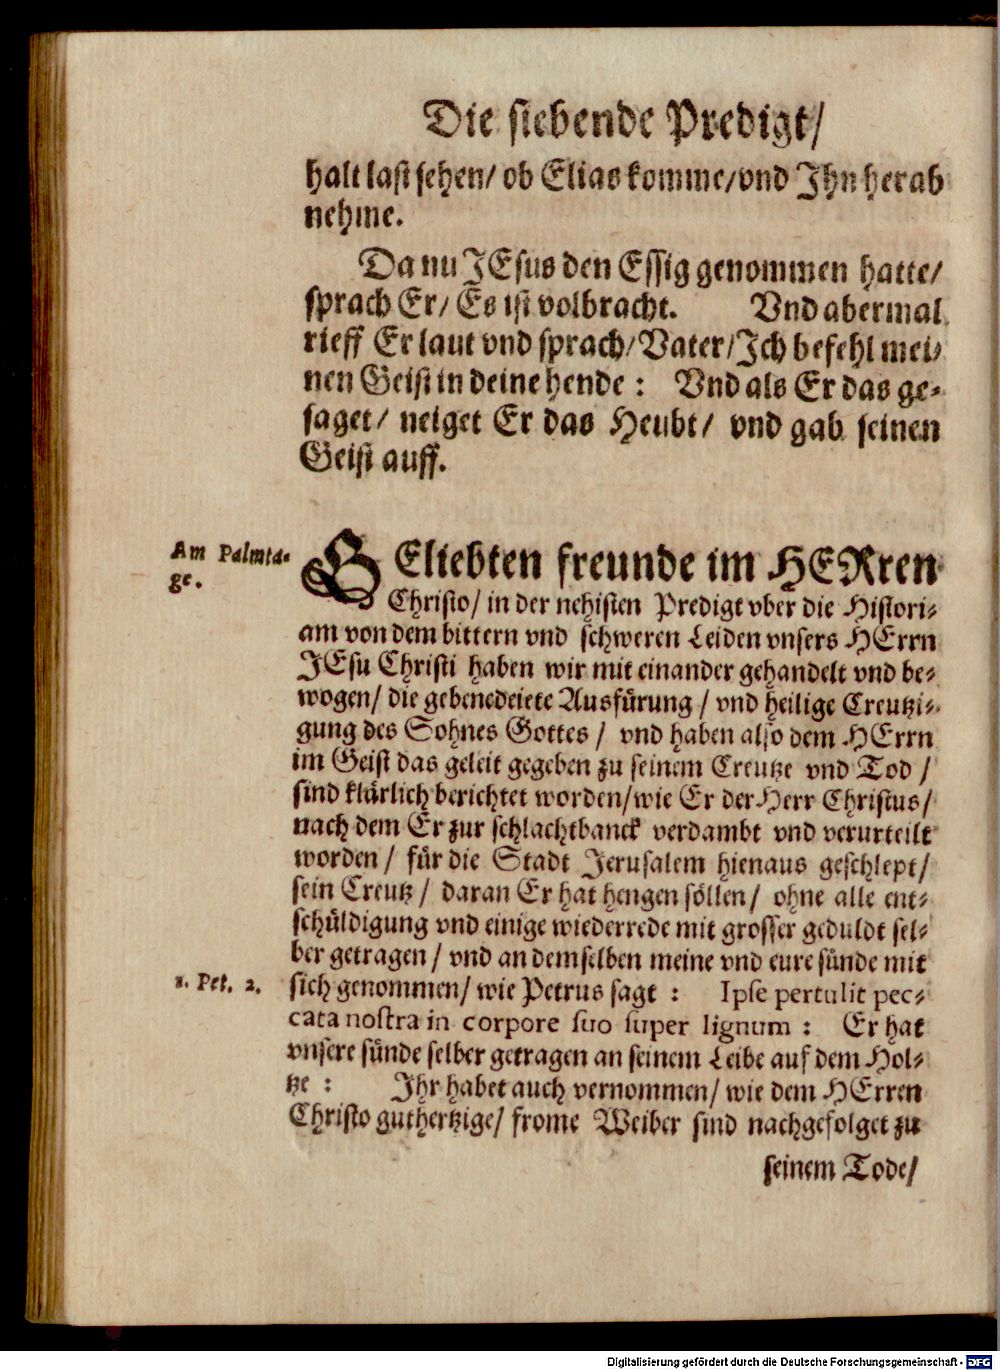 Die siebende Predigt/
halt last sehen/ ob Elias komme/vnd Jhn herab
nehme.
Da nu JEsus den Essig genommen hatte/
sprach Er/ Es ist volbracht. Vnd abermal
rieff Er laut vnd sprach/Vater/Jch befehl mei-
nen Geist in deine hende : Vnd als Er das ge-
saget/ neiget Er das Heubt/ vnd gab seinen
Geist auff.
Am Palmta-
ge.
GEliebten freunde im HERren
Christo/ in der nehisten Predigt vber die Histori-
am von dem bittern vnd schweren Leiden vnsers HErrn
JEsu Christi haben wir mit einander gehandelt vnd be-
wogen/ die gebenedeiete Ausfürung / vnd heilige Creutzi-
gung des Sohnes Gottes / vnd haben also dem HErrn
im Geist das geleit gegeben zu seinem Creutze vnd Tod /
sind klärlich berichtet worden/wie Er der Herr Christus/
nach dem Er zur schlachtbanck verdambt vnd verurteilt
worden / für die Stadt Jerusalem hienaus geschlept/
sein Creutz / daran Er hat hengen söllen/ ohne alle ent-
schüldigung vnd einige wiederrede mit grosser geduldt sel-
ber getragen / vnd an demselben meine vnd eure sünde mit
1. Pet. 2.
sich genommen/ wie Petrus sagt : Ipse pertulit pec-
cata nostra in corpore suo super lignum : Er hat
vnsere sünde selber getragen an seinem Leibe auf dem Hol-
tze : Jhr habet auch vernommen/ wie dem HErren
Christo guthertzige/ frome Weiber sind nachgefolget zu
seinem Tode/
Digitalisierung gefördert durch die Deutsche Forschungsgemeinschaft - DFG